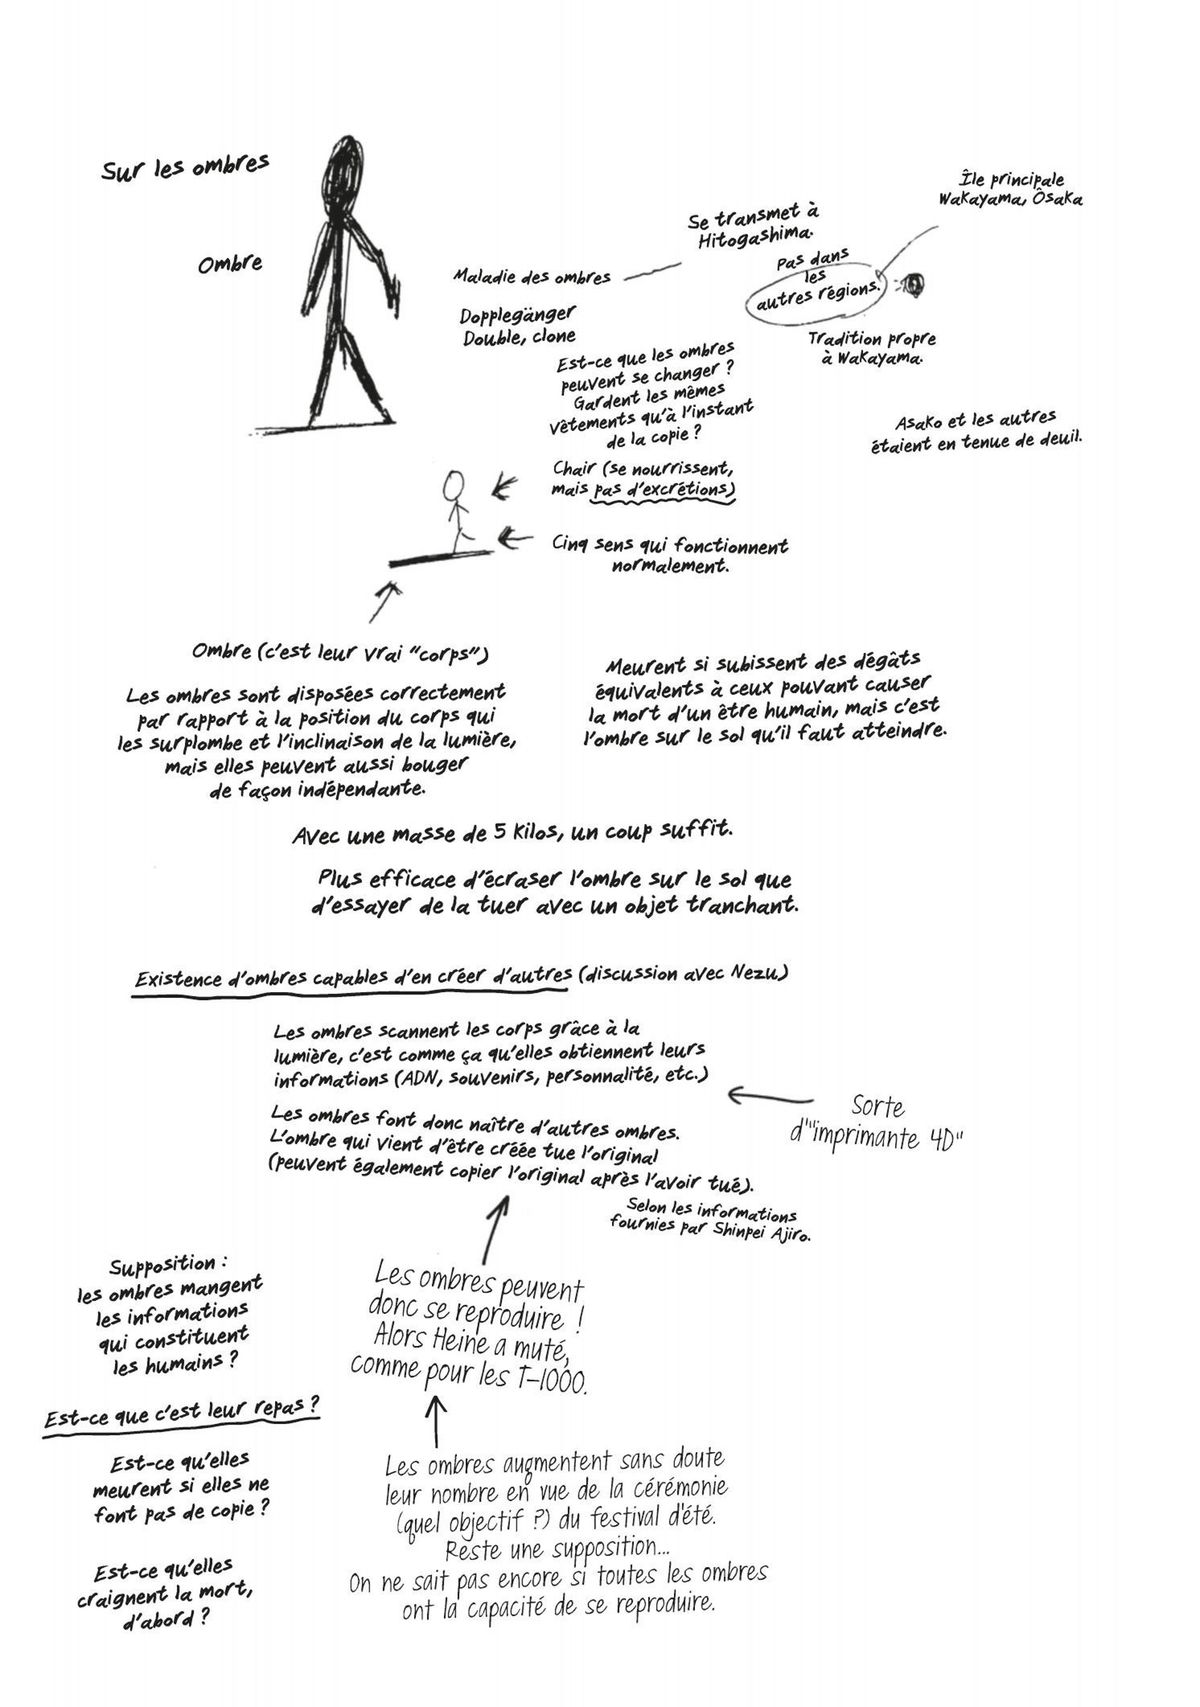 Sur les ombres
Ombre
Maladie des ombres
Se transmet à
Hitogashima.
Île principale
Wakayama, Ôsaka
Pas dans
les
autres régions.
Tradition propre
à Wakayama.
Dopplegänger
Double, clone
Est-ce que les ombres
peuvent se changer ?
Gardent les mêmes
vêtements qu'à l'instant
de la copie ?
Asako et les autres
étaient en tenue de deuil.
Chair (se nourrissent,
mais pas d'excrétions)
Cinq sens qui fonctionnent
normalement.
Ombre (c'est leur vrai "corps")
Les ombres sont disposées correctement
par rapport à la position du corps qui
les surplombe et l'inclinaison de la lumière,
mais elles peuvent aussi bouger
de façon indépendante.
Meurent si subissent des dégâts
équivalents à ceux pouvant causer
la mort d'un être humain, mais c'est
l'ombre sur le sol qu'il faut atteindre.
Avec une masse de 5 kilos, un coup suffit.
Plus efficace d'écraser l'ombre sur le sol que
d'essayer de la tuer avec un objet tranchant.
Existence d'ombres capables d'en créer d'autres (discussion avec Nezu)
Les ombres scannent les corps grâce à la
lumière, c'est comme ça qu'elles obtiennent leurs
informations (ADN, souvenirs, personnalité, etc.)
Sorte
d'"imprimante 4D"
Les ombres font donc naître d'autres ombres.
L'ombre qui vient d'être créée tue l'original
(peuvent également copier l'original après l'avoir tué).
Selon les informations
fournies par Shinpei Ajiro.
Supposition :
les ombres mangent
les informations
qui constituent
les humains ?
Est-ce que c'est leur repas ?
Est-ce qu'elles
meurent si elles ne
font pas de copie ?
Est-ce qu'elles
craignent la mort,
d'abord ?
Les ombres peuvent
donc se reproduire !
Alors Heine a muté,
comme pour les T-1000.
Les ombres augmentent sans doute
leur nombre en vue de la cérémonie
(quel objectif ?) du festival d'été.
Reste une supposition...
On ne sait pas encore si toutes les ombres
ont la capacité de se reproduire.